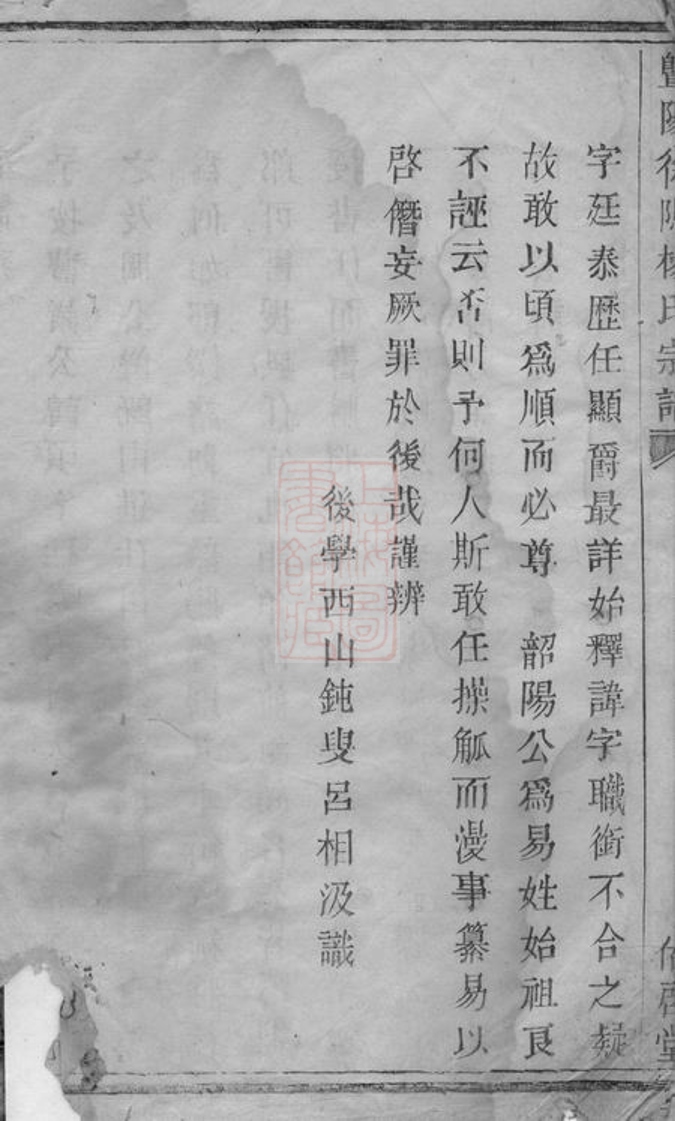 暨陽徐陳楊氏宗譜
字廷泰歷任顯爵最詳始釋諱字職銜不合之疑
故敢以頃爲順而必尊　韶陽公爲易姓始祖良
不誣云否則予何人斯敢任操觚而漫事纂易以
啓僭妄厥罪於後哉謹辨
後學西山鈍叟呂相汲識
啓堂